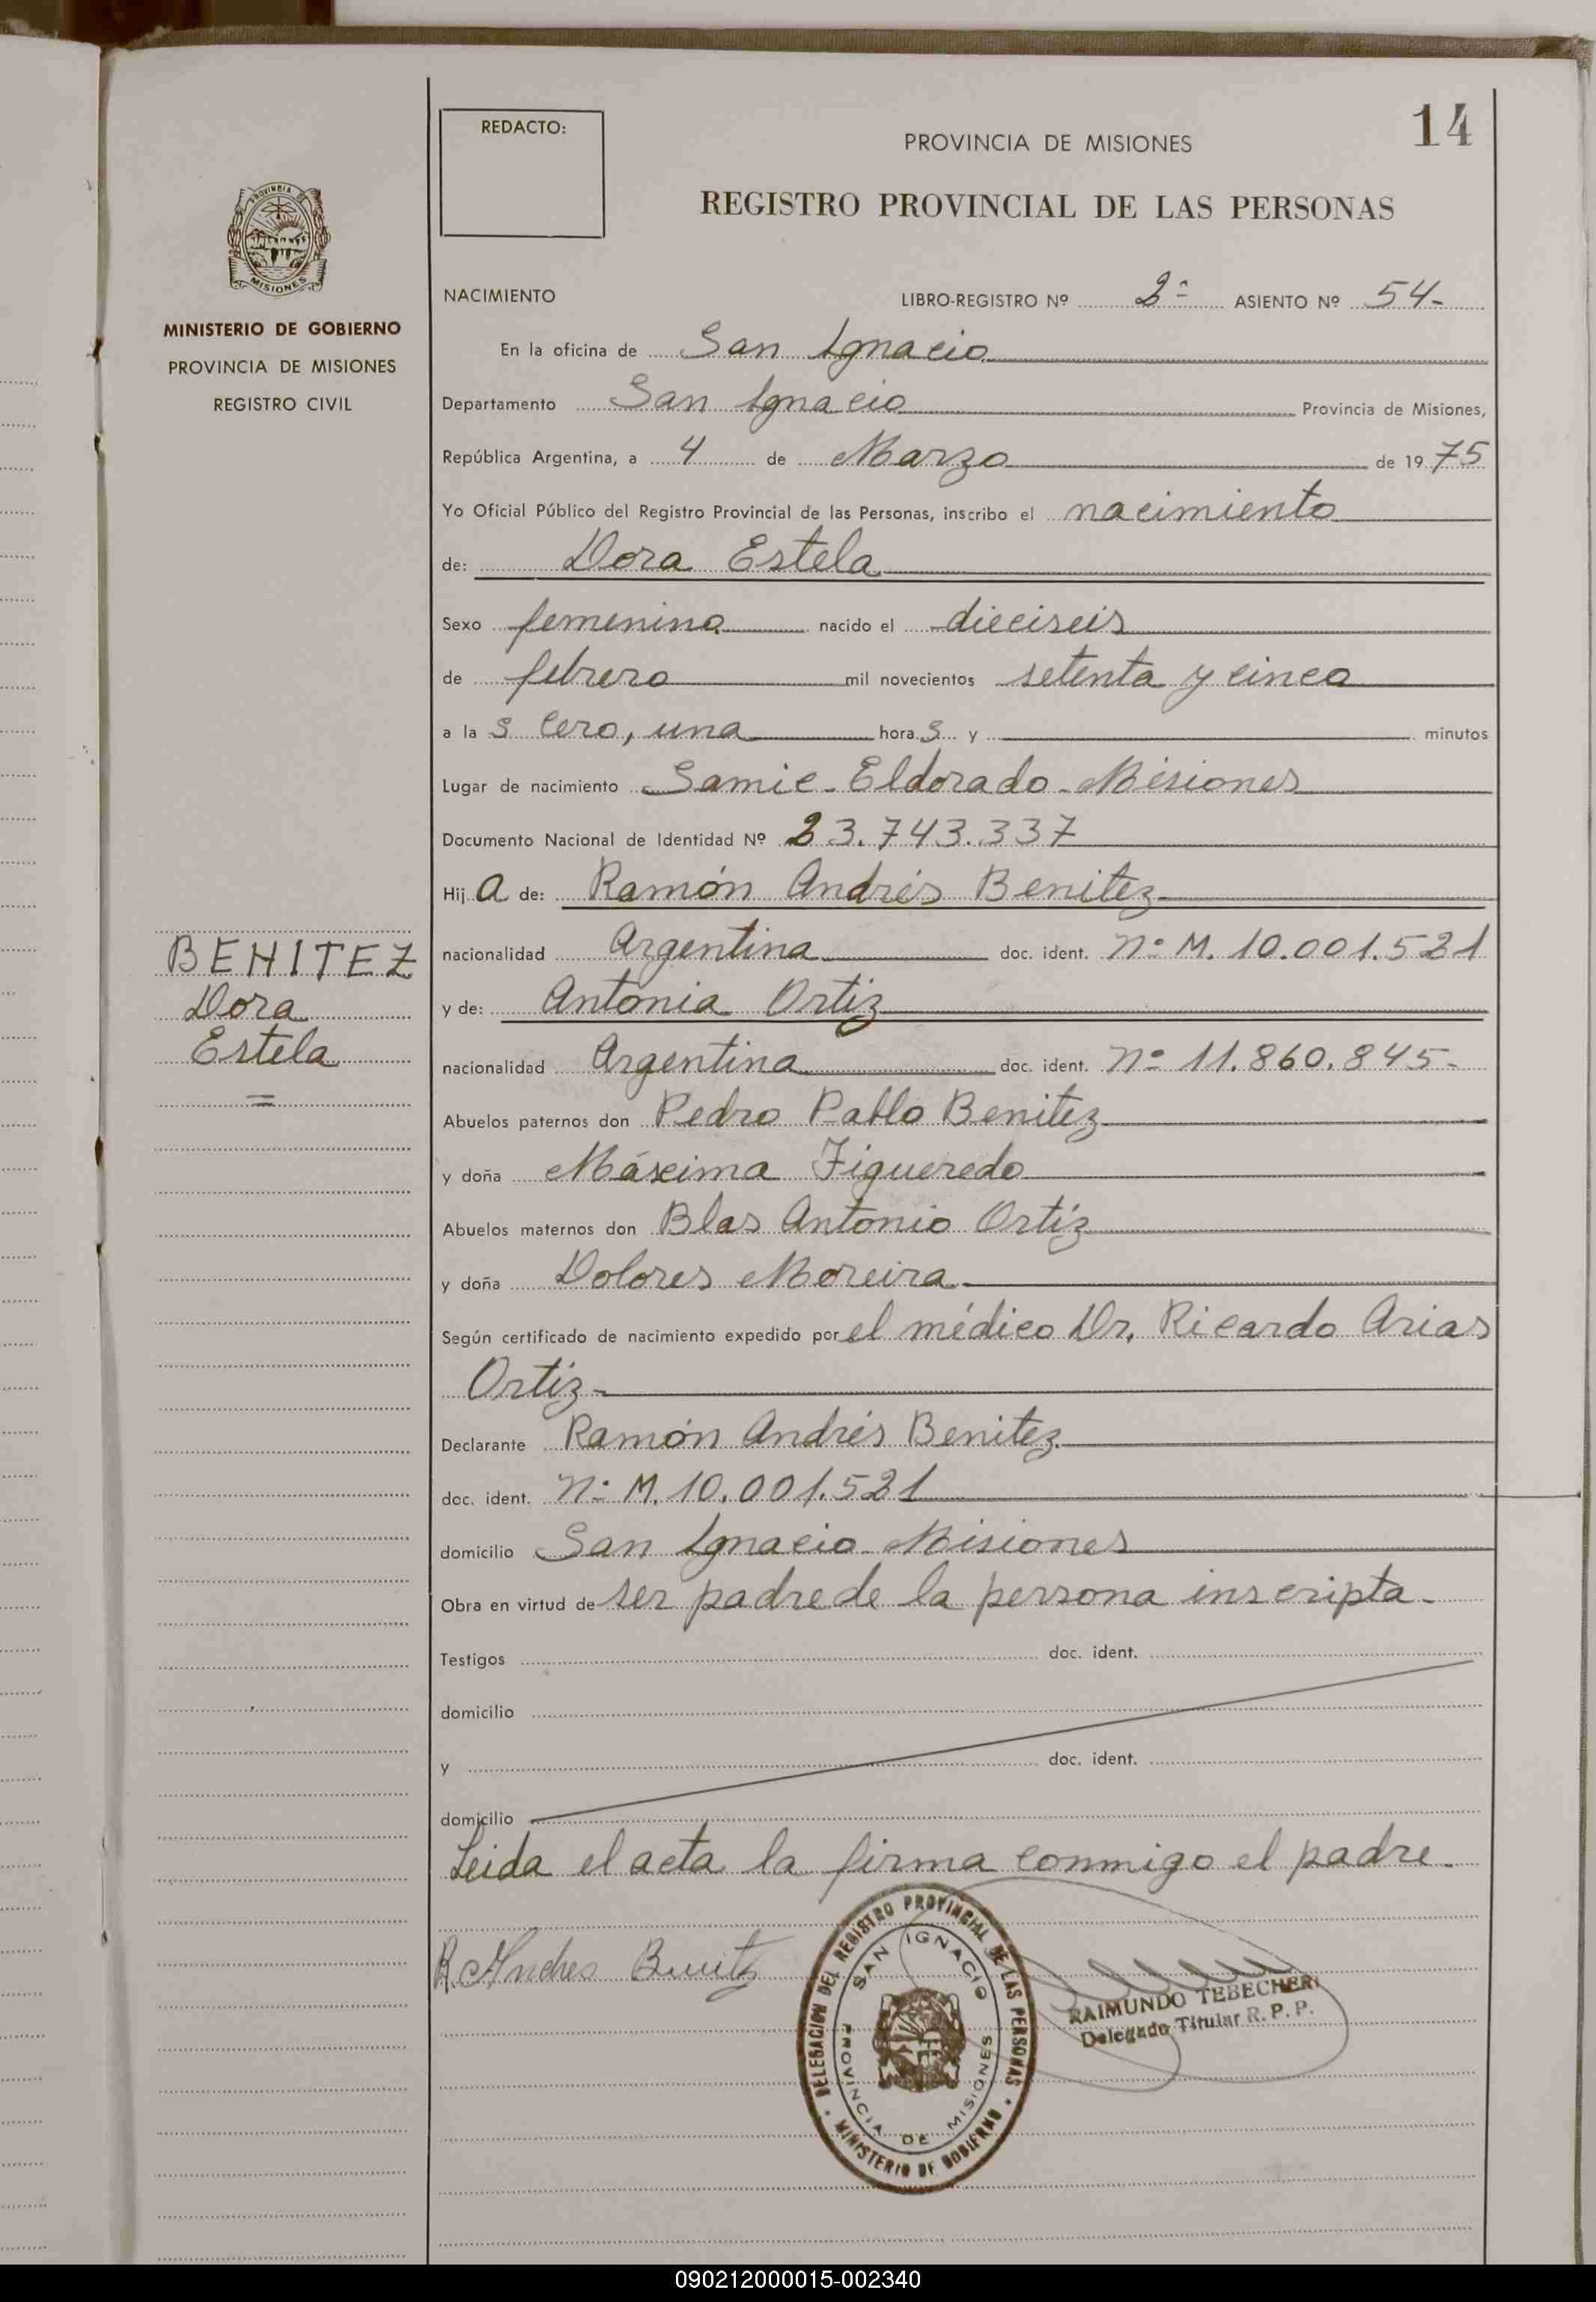 14
REDACTO:
PROVINCIA DE MISIONES
REGISTRO PROVINCIAL DE LAS PERSONAS
PROVINCIA
MISIONES
MINISTERIO DE GOBIERNO
PROVINCIA DE MISIONES
REGISTRO CIVIL
NACIMIENTO LIBRO-REGISTRO Nº 2º ASIENTO Nº 54-
En la oficina de San Ignacio
Departamento San Ignacio Provincia de Misiones,
República Argentina, a 4 de Marzo de 1975
Yo Oficial Público del Registro Provincial de las Personas, inscribo el nacimiento
de: Dora Estela
Sexo femenino nacido el dieciseis
de febrero mil novecientos setenta y cinco
a las cero, una horas y minutos
Lugar de nacimiento Samic-Eldorado-Misiones
Documento Nacional de Identidad Nº 23.743.337
Hija de: Ramón Andrés Benitez
nacionalidad Argentina doc. ident. Nº M. 10.001.521
y de: Antonia Ortiz
nacionalidad Argentina doc. ident. Nº 11.860.845-
Abuelos paternos don Pedro Pablo Benitez
y doña Máxima Figueredo
Abuelos maternos don Blas Antonio Ortiz
y doña Dolores Moreira
Según certificado de nacimiento expedido por el médico Dr. Ricardo Arias
Ortiz-
Declarante Ramón Andrés Benitez
doc. ident. Nº M. 10.001.521
domicilio San Ignacio-Misiones
Obra en virtud de ser padre de la persona inscripta-
Testigos doc. ident.
domicilio
y doc. ident.
domicilio
Leida el acta la firma conmigo el padre.
BENITEZ
Dora
Estela
=
R. Andres Benitz
DELEGACION DEL REGISTRO PROVINCIAL DE LAS PERSONAS
MINISTERIO DE GOBIERNO
SAN IGNACIO
PROVINCIA DE MISIONES
RAIMUNDO TEBECHERI
Delegado Titular R. P. P.
090212000015-002340